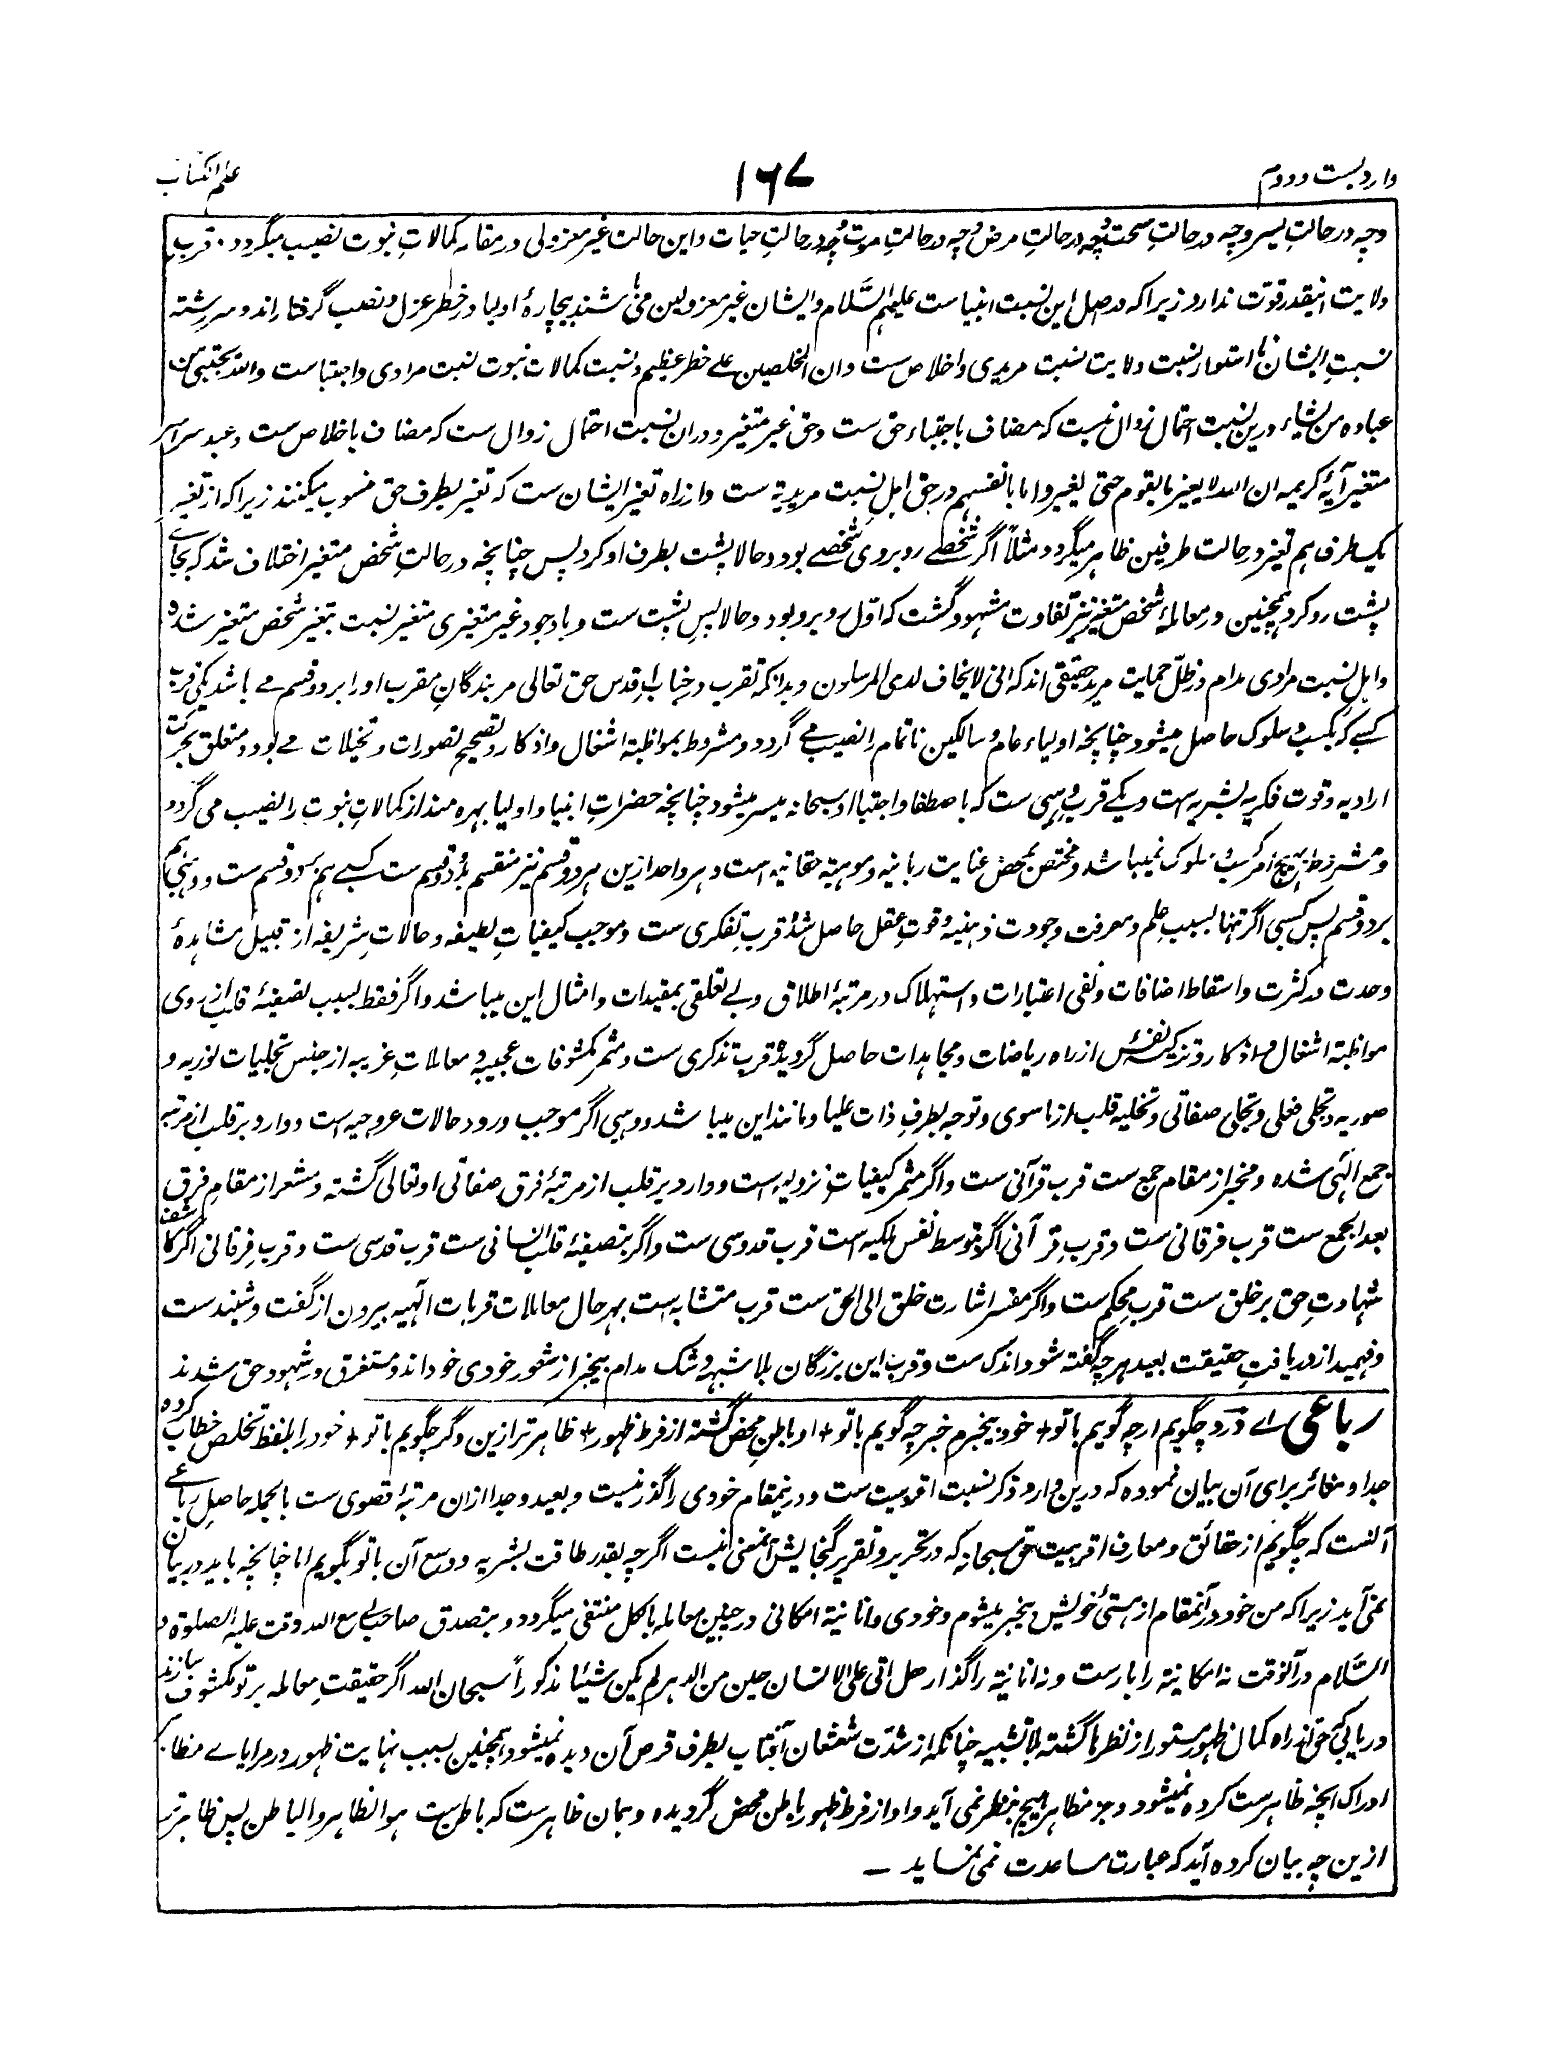 وارد بست و دوم
۱۶۷
علم الکتاب
وچه در حالتِ یسر وچه در حالتِ صحت وچه در حالتِ مرض وچه در حالتِ موت وچه در حالتِ حیات و این حالت غیر معزولی در مقام کمالاتِ نبوت نصیب میگردد. قرب
ولایت اینقدر قوّت ندارد زیرا که در اصل این نسبت انبیاست علیهم السَّلام و ایشان غیر معزولین می باشند بیچارۂ اولیا در خطر عزل و نصب گرفتار اند و سررشته
نسبتِ ایشان نا استوار نسبت ولایت نسبت مریدی و اخلاص ست و ان المخلصین علی خطر عظیم و نسبت کمالات نبوت نسبت مرادی و اجتباست والله یجتبی من
عباده من یشاء و درین نسبت احتمال زوال نیست که مضاف باجتباء حق ست و حق غیر متغیر و دران نسبت احتمال زوال ست که مضاف باخلاص ست و عبد سراسر
متغیر آیۂ کریمه ان الله لا یغیر ما بقوم حتی یغیروا ما بانفسهم در حق اہلِ نسبت مریدیة ست و از راه تغیر ایشان ست که تغیر بطرف حق منسوب میکنند زیرا که از تغیر
یک طرف ہم تغیر در حالت طرفین ظاہر میگردد مثلاً اگر شخصے روبروی شخصے بود و حالا پشت بطرف او کرد پس چنانچه در حالتِ شخص متغیر اختلاف شد که بجاے
پشت رو کرد ہمچنین در معاملۂ شخص متغیر نیز تفاوت مشہود گشت که اوّل روبرو بود و حالا پسِ پشت ست و باوجود غیر متغیری متغیر نسبت بتغیر شخص متغیر شده
و اہلِ نسبت مرادی مدام در ظلّ حمایت مرید حقیقی اند که انی لا یخاف لدی المرسلون و بدانکه تقرب در جناب اقدس حق تعالی مر بندگانِ مقرب او را بر دو قسم مے باشد یکی قرب
کسبے که بکسب و سلوک حاصل میشود چنانچه اولیاء عام و سالکین ناتمام را نصیب مے گردد و مشروط بمواظبت اشغال و اذکار و تصحیح تصورات و تخیلات مے بود و متعلق بحرکت
ارادیه و قوت فکریه بشریه ست و یکے قرب وہبی ست که باصطفا و اجتبا او سبحانه میسر میشود چنانچه حضراتِ انبیا و اولیا بہره مند از کمالاتِ نبوت را نصیب می گردد
و مشروط بہیچ امر کسب و سلوک نمیباشد و مختص بمحض عنایت ربانیه و موہبة حقانیه است و ہر واحد ازین ہر دو قسم نیز منقسم بر دو قسم ست کسبے ہم بر دو قسم ست و وہبی ہم
بر دو قسم پس کسبی اگر تنہا بسببِ علم و معرفت وجودت ذہنیه و قوتِ عقل حاصل شد قرب تفکری ست و موجب کیفیاتِ لطیفه و حالاتِ شریفه از قبیل مشاہدۂ
وحدت در کثرت و اسقاط اضافات و نفی اعتبارات و استہلاک در مرتبۂ اطلاق و بے تعلقی بمقیدات و امثال این میباشد و اگر فقط بسبب تصفیۂ قلب از روی
مواظبة اشغال و اذکار و تزکیۂ نفس از راه ریاضات و مجاہدات حاصل گردید قرب تذکری ست و مثمر مکشوفات عجیبه و معاملاتِ غریبه از جنس تجلیات نوریه و
صوریه و تجلی فعلی و تجلی صفاتی و تخلیه قلب از ماسوی و توجه بطرفِ ذات علیا و مانند این میباشد و وہبی اگر موجب ورود حالات عروجیه است و وارد بر قلب از مرتبه
جمع الٓہی شده و مخبر از مقام جمع ست قرب قرآنی ست و اگر مثمر کیفیات نزولیه است و وارد بر قلب از مرتبۂ فرق صفاتی او تعالی گشته و مشعر از مقامِ فرق
بعد الجمع ست قرب فرقانی ست و قرب قرآنی اگر بتوسط نفس ملکیه است قرب قدوسی ست و اگر بتصفیۂ قلب انسانی ست قرب قدسی ست و قربِ فرقانی اگر کاشف
شہادتِ حق بر خلق ست قرب محکم ست و اگر مفسر اشارت خلق الی الحق ست قرب متشابه ست بہر حال معاملات قربات الٓہیه بیرون از گفت و شنید ست
و فہمید از دریافتِ حقیقت بعید ہرچه گفته شود اندک ست و قرب این بزرگان بلا شبہه و شک مدام بیخبر از شعور خودی خود اند و مستغرق در شہود حق شدند
رباعی اے درد چگویم ارچه گویم باتو + خود بیخبرم خبر چه گویم باتو + او باطنِ محض گشته از فرط ظہور + ظاہر تر ازین دگر چگویم باتو + خود را بلفظ تخلص خطاب کرده
جدا و مغائر برای آن بیان نموده که درین وارد ذکر نسبت اقربیت ست و درینمقام خودی را گذر نیست و بعید و جدا ازان مرتبۂ قصوی ست بالجمله حاصلِ رباعے
آنست که چگویم از حقائق و معارف اقربیت حق سبحانه که در تحریر و تقریر گنجایش آنمعنی نیست اگرچه بقدر طاقت بشریه و وسع آن باتو بگویم اما چنانچه باید در بیان
نمی آید زیرا که من خود در آنمقام از ہستئ خویش بیخبر میشوم و خودی و انانیة امکانی در چنین معامله بالکل منتفی میگردد و بتصدق صاحب لی مع الله وقت علیه الصلوة و
السَّلام در آنوقت نه امکانیة را بارست و نه انانیة را گذار هل اتی علی الانسان حین من الدهر لم یکن شیئا مذکوراً سبحان الله اگر حقیقتِ معامله بر تو مکشوف سازند
دریابی که حق از راه کمال ظہور مستور از نظرہا گشته بلا تشبیه چنانکه از شدّت شعشعان آفتاب بطرف قرص آن دیده نمیشود ہمچنین بسبب نہایت ظہور در مرایاے مظاہر
ادراک آنچه ظاہرست کرده نمیشود و جز مظاہر ہیچ بنظر نمی آید و او از فرط ظہور باطن محض گردیده و ہمان ظاہرست که باطن ست هو الظاهر والباطن پس ظاہر تر
ازین چه بیان کرده آید که عبارت مساعدت نمی نماید ــ